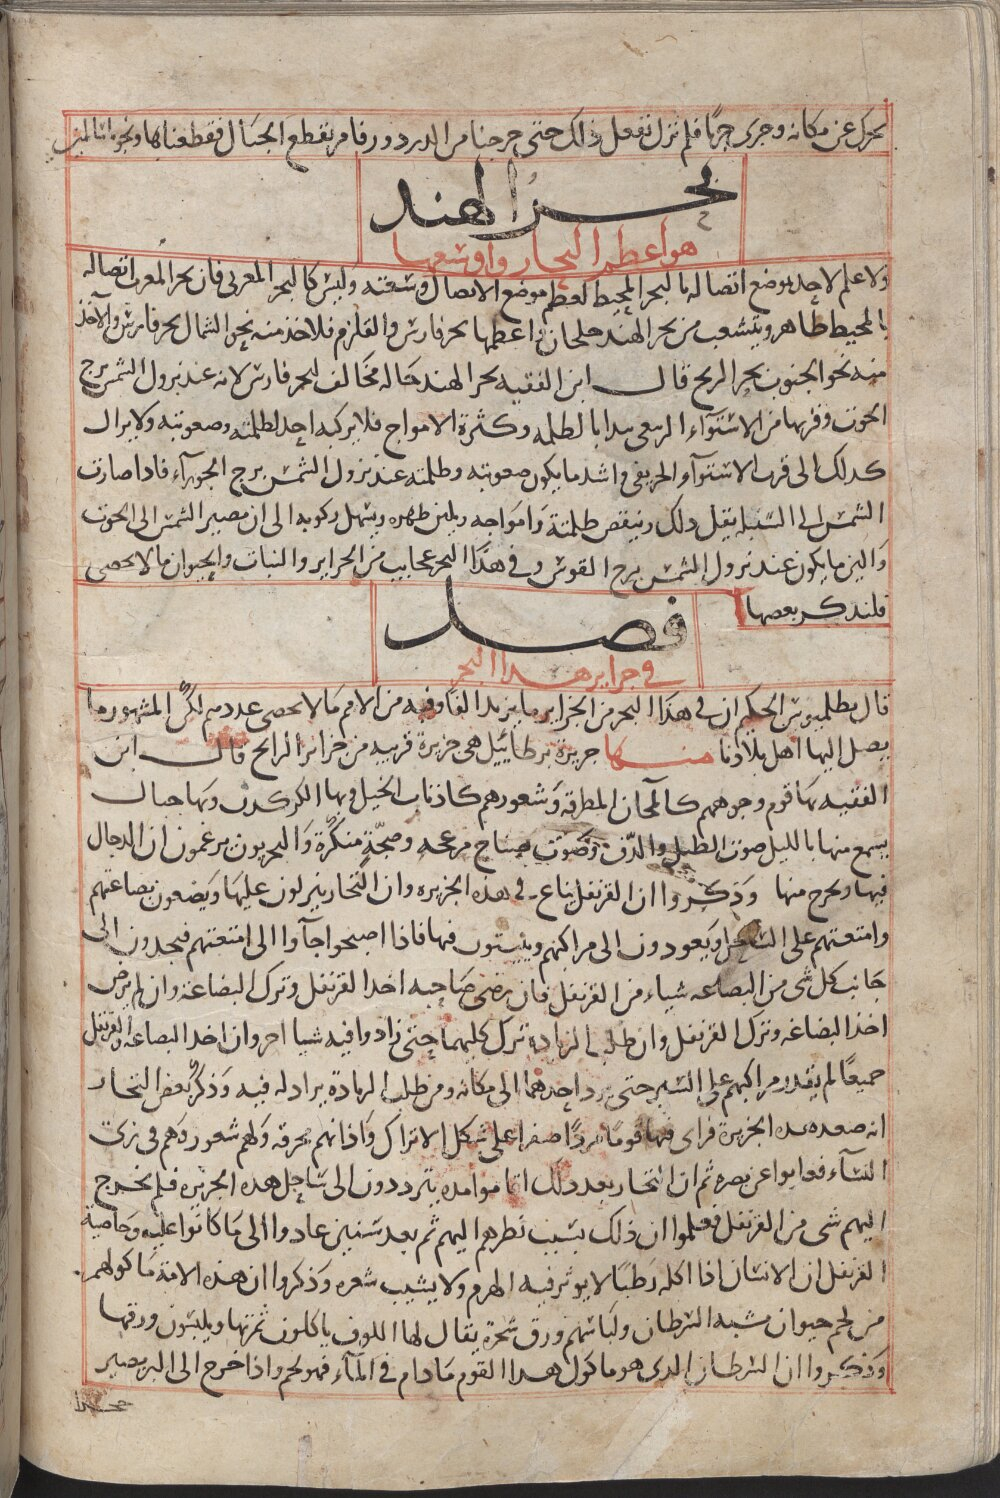 يتحرك عن مكانه وجرى جريًا فلم نزل نفعل ذلك حتى خرجنا من الدردور فامر بقطع الحبال فقطعناها ونجونا
بحر الهند
هو اعظم البحار واوسعها
ولا علم لاحد بموضع اتصاله بالبحر المحيط لعظم موضع الاتصال وسعته وليس كالبحر المغربي فان بحر المغرب اتصاله
بالمحيط ظاهر ويتشعب من بحر الهند خلجان واعظمها بحر فارس والقلزم فلاخذ منه نحو الشمال بحر فارس والآخذ
منه نحو الجنوب بحر الزنج قال ابن الفقيه بحر الهند حاله مخالف لبحر فارس لانه عند نزول الشمس برج
الحوت وقربها من الاستواء الربيعي يبدا بالظلمه وكثرة الامواج فلا يركبه احد لظلمته وصعوبته ولا يزال
كذلك الى قرب الاستوآء الخريفي واشد ما يكون صعوبته وظلمته عند نزول الشمس برج الجوزآء فاذا صارت
الشمس الى السنبله يقل ذلك وينقص ظلمتة وامواجه ويلين ظهره ويسهل ركوبه الى ان مصير الشمس الى الحوت
والين ما يكون عند نزول الشمس برج القوس وفي هذا البحر عجايب من الجزاير والنبات والحيوان ما لا يحصى
فلنذكر بعضها
فصل
في جزاير هذا البحر
قال بطلميوس الحكيم ان في هذا البحر من الجزاير ما يزيد الفا وفيه من الامم ما لا يحصى عددهم لكن المشهور ما
يصل اليها اهل بلادنا منها جزيرة برطاييل هي جزيرة قريبه من جزاير الزابج قال ابن
الفقيه بها قوم وجوههم كالمجان المطرقه وشعورهم كاذناب الخيل وبها الكركدن وبها جبال
يسمع منها بالليل صوت الطبل والدف وصوت صياح مزعجه وضجّة منكرة والبحريون يزعمون ان الدجال
فيها ويخرج منها وذكروا ان القرنفل يباع في هذه الجزيره وان التجار ينزلون عليها ويضعون بضاعتهم
وامتعتهم على الساحل ويعودون الى مراكبهم ويبيتون فيها فاذا اصبحوا جآوا الى امتعتهم فيجدون الى
جانب كل شي من البضاعه شياء من القرنفل فان رضي صاحبه اخذ القرنفل وترك البضاعة وان لم يرض
اخذ البضاعه وترك القرنفل وان طلب الزيادة ترك كليهما حتى زادوا فيه شيا اخر وان اخذ البضاعه والقرنفل
جميعًا لم يقدر مراكبهم على السير حتى يرد احدهما الى مكانه ومن طلب الزيادة يزاد له فيه وذكر بعض التجار
انه صعد هذه الجزيرة فراى فيها قومًا مردًا صفرا على شكل الاتراك وآذانهم مخرقه ولهم شعور وهم في زي
النسآء فغابوا عن بصره ثم ان التجار بعد ذلك اقاموا مده يترددون الى ساحل هذه الجزيره فلم يخرج
اليهم شي من القرنفل فعلموا ان ذلك بسبب نظرهم اليهم ثم بعد سنين عادوا الى ما كانوا عليه وخاصية
القرنفل ان الانسان اذا اكله رطبًا لا يوثر فيه الهرم ولا يشيب شعره وذكروا ان هذه الامة ماكولهم
من لحم حيوان مشبه السرطان ولباسهم ورق شجرة يقال لها اللوف ياكلون ثمرتها ويلبسون ورقها
وذكروا ان السرطان الذي هو ماكول هذا القوم مادام في المآء فهو لحم واذا خرج الى البر يصير
حجرا